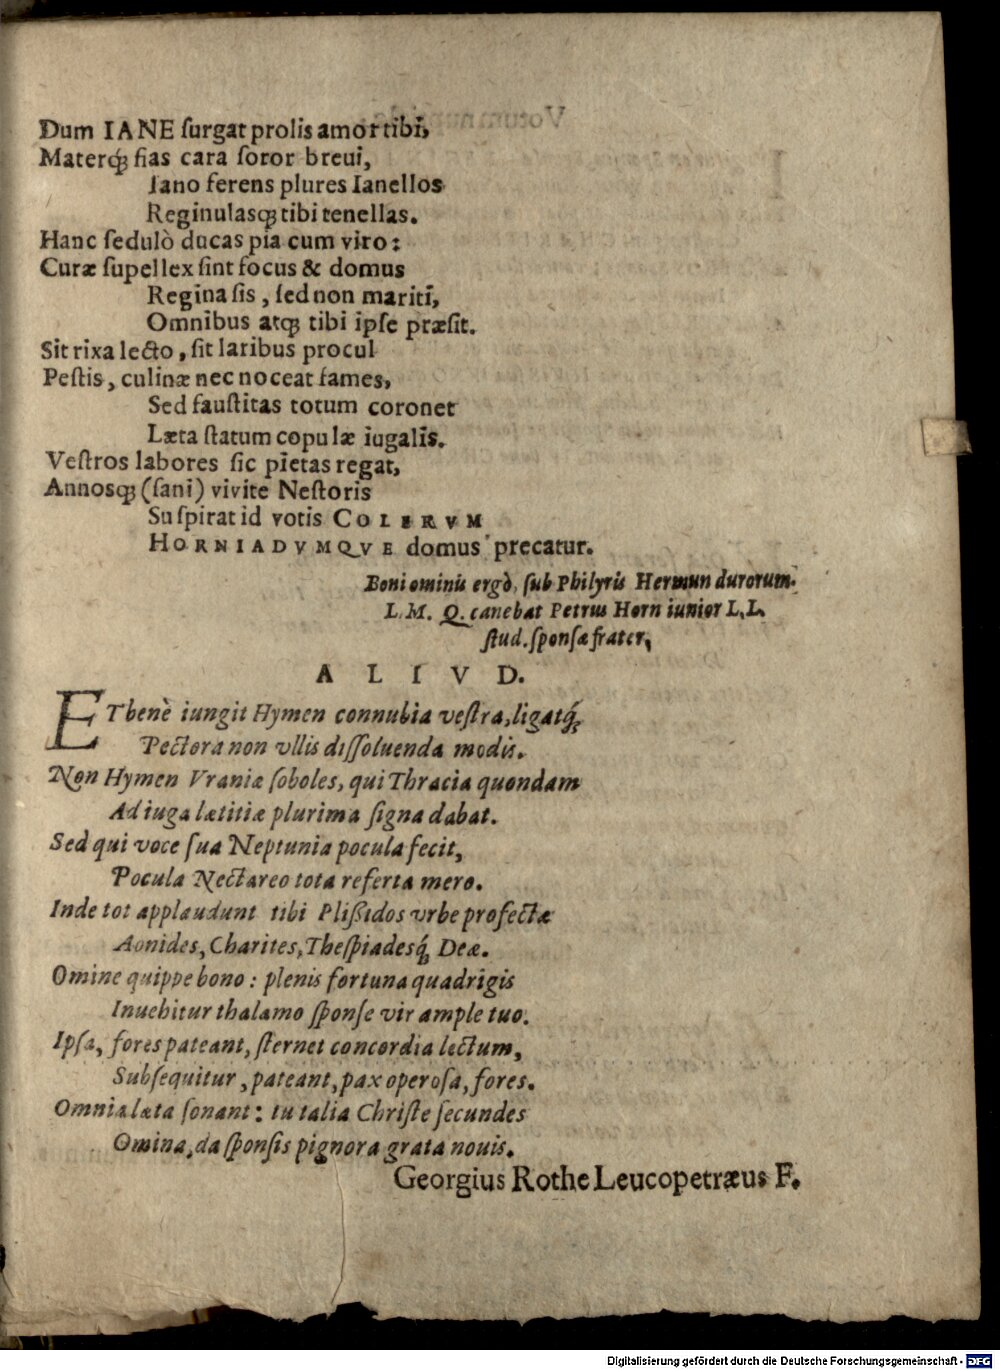 Dum IANE surgat prolis amor tibi,
Materq́; fias cara soror brevi,
Iano ferens plures Ianellos
Reginulasq; tibi tenellas.
Hanc sedulò ducas pia cum viro:
Curæ supellex sint focus & domus
Regina sis, sed non mariti,
Omnibus atq; tibi ipse præsit.
Sit rixa lecto, sit laribus procul
Pestis, culinæ nec noceat fames,
Sed faustitas totum coronet
Læta statum copulæ iugalis.
Vestros labores sic pietas regat,
Annosq; (sani) vivite Nestoris
Suspirat id votis COLERVM
HORNIADVMQVE domus precatur.
Boni ominis ergò, sub Philyris Hermundurorum.
L. M. Q. canebat Petrus Horn iunior L. L.
stud. sponsæ frater,
ALIVD.
ET benè iungit Hymen connubia vestra, ligatq́;
Pectora non vllis dissoluenda modis.
Non Hymen Vraniæ soboles, qui Thracia quondam
Ad iuga lætitiæ plurima signa dabat.
Sed qui voce sua Neptunia pocula fecit,
Pocula Nectareo tota referta mero.
Inde tot applaudunt tibi Plißidos vrbe profectæ
Aonides, Charites, Thespiadesq́; Deæ.
Omine quippe bono: plenis fortuna quadrigis
Inuehitur thalamo sponse vir ample tuo.
Ipsa, fores pateant, sternet concordia lectum,
Subsequitur, pateant, pax operosa, fores.
Omnia læta sonant: tu talia Christe secundes
Omina, da sponsis pignora grata nouis.
Georgius Rothe Leucopetræus F.
Digitalisierung gefördert durch die Deutsche Forschungsgemeinschaft - DFG